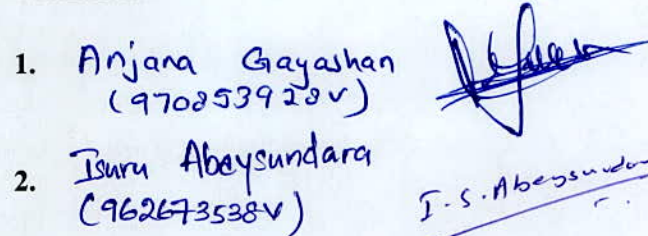 1. Anjana Gayashan
(970853928V)
2. Isuru Abeysundara
(962673538V) I.S.Abeysundara